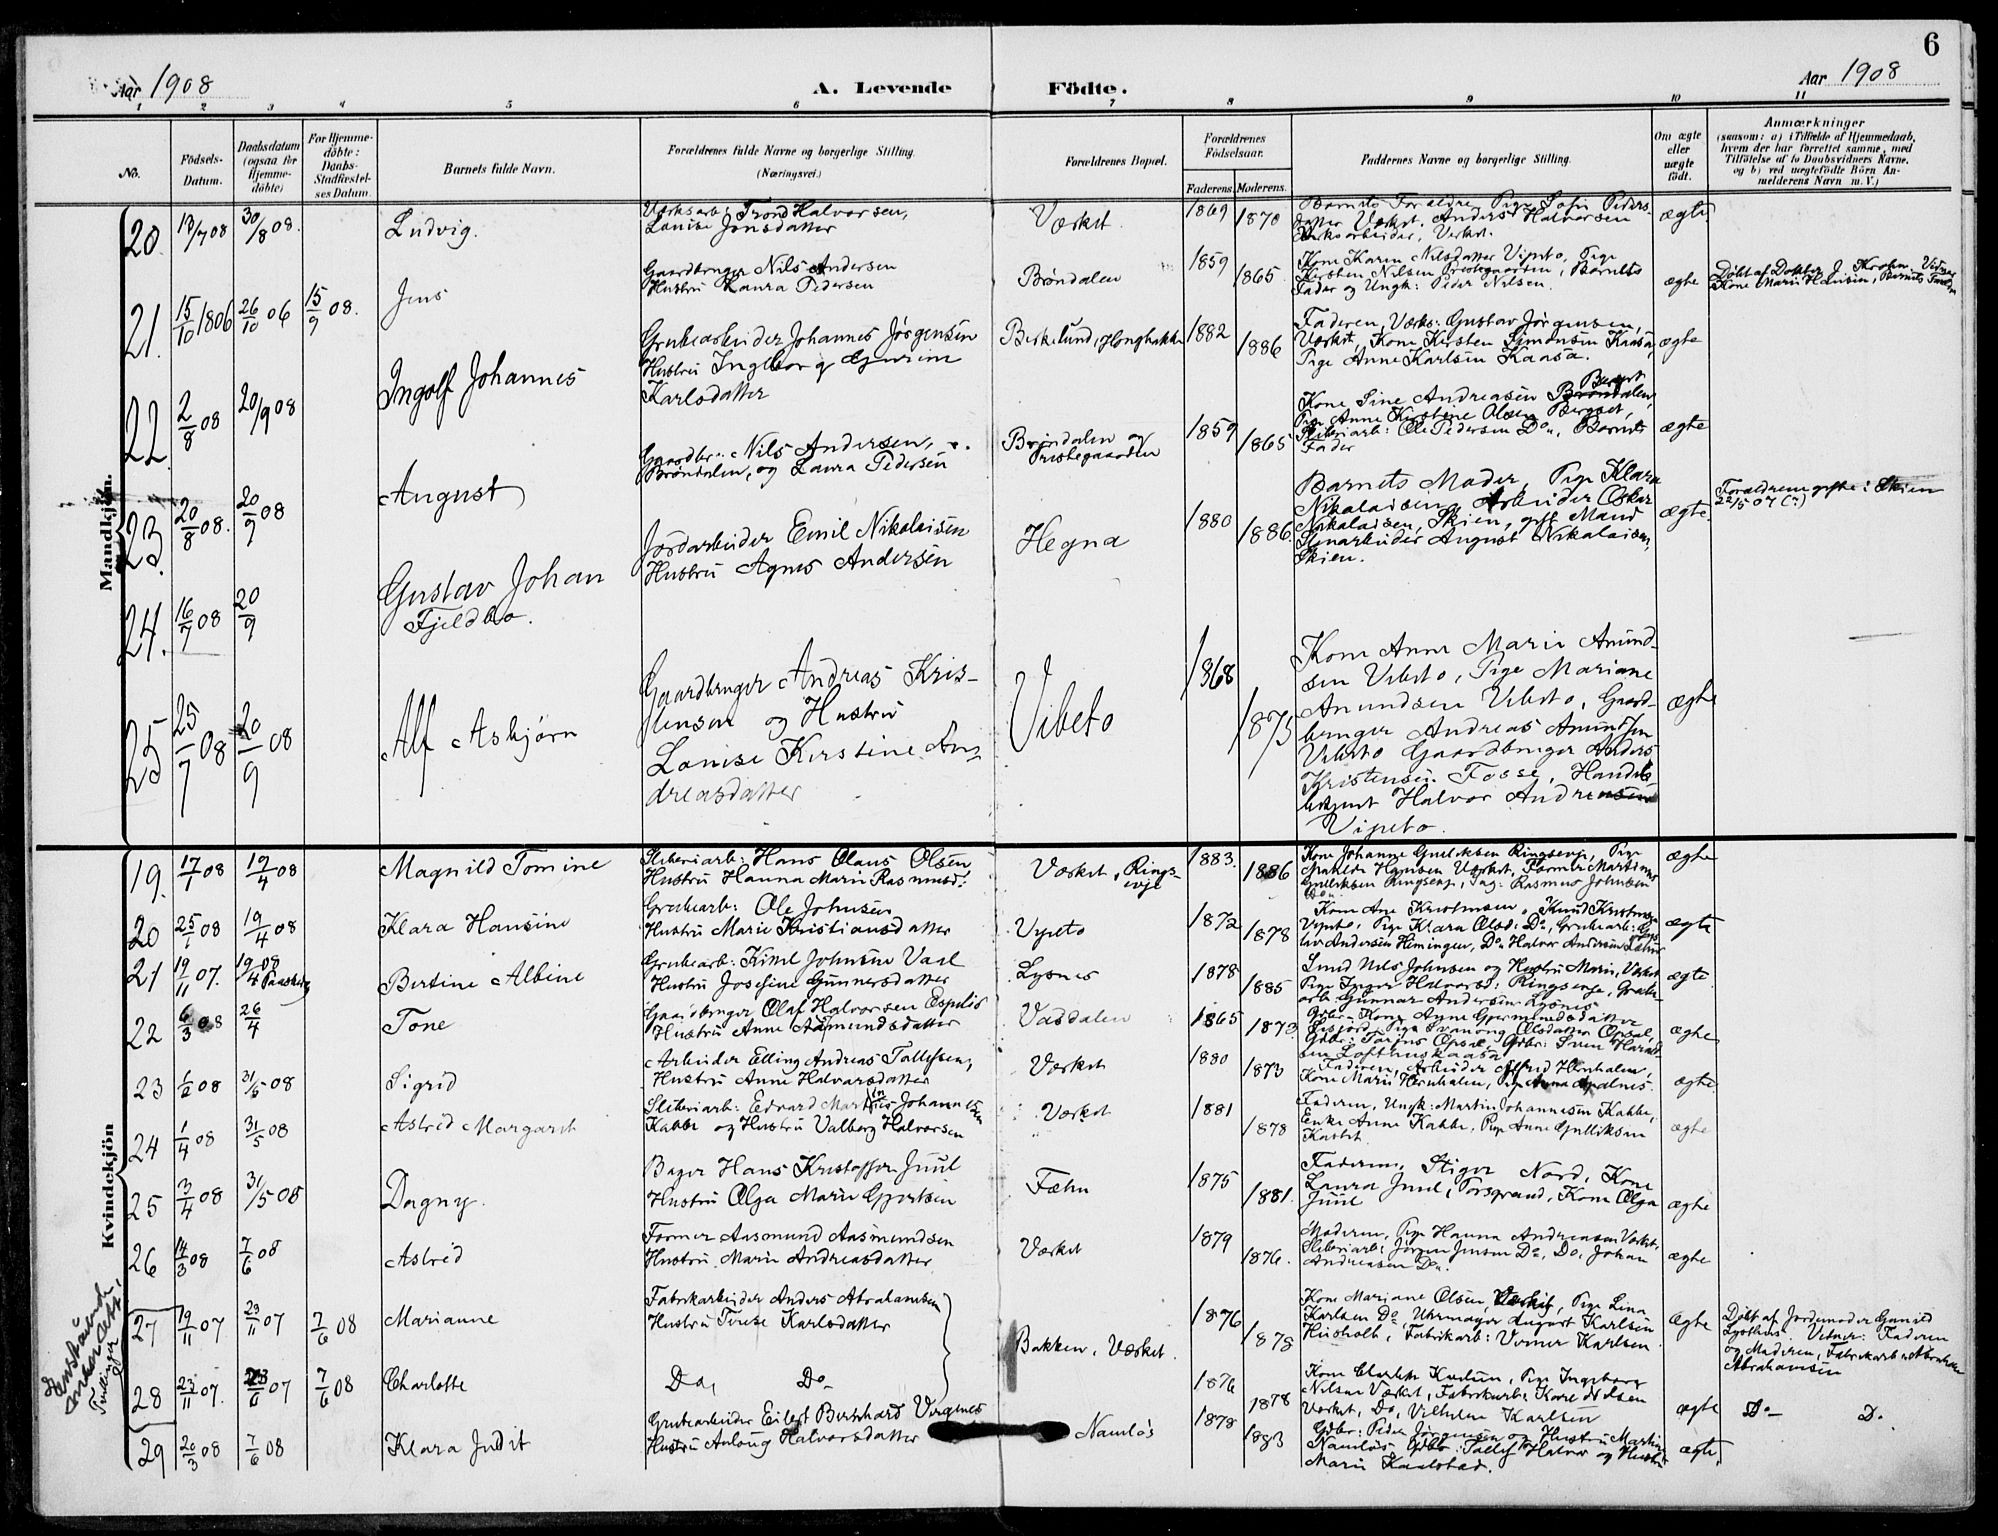 6
Aar 1908
A. Levende
Födte.
Aar 1908
1 2 3 4 5 6 7 8 9 10 11
No.
Födsels-
Datum.
Daabsdatum
(ogsaa for
Hjemme-
döbte)
For Hjemme-
döbte:
Daabs-
Stadfæstel-
ses Datum.
Barnets fulde Navn.
Forældrenes fulde Navne og borgerlige Stilling.
(Næringsvei.)
Forældrenes Bopæl.
Forældrenes
Födselsaar.
Faderens. Moderens.
Faddernes Navne og borgerlige Stilling.
Om ægte
eller
uægte
födt.
Anmærkninger
(saasom: a) i Tilfælde af Hjemmedaab,
hvem der har forrettet samme, med
Tilföielse af to Daabsvidners Navne.
og b) ved uægtefödte Börn An-
melderens Navn m. V.)
Mandkjön.
20. 13/7 08 30/8 08. Ludvig.
Værksarb: Trond Halvorsen,
Louise Jonsdatter
Værket. 1869 1870
Barnets Forældre, Pige Sofie Peders-
datter Værket. Anders Halvorsen
Værksarbeider, Værket.
ægte
21. 15/10 1806 26/10 06 15/9 08. Jens
Gaardbruger Nils Andersen
Hustru Laura Pedersen
Brøndalen 1859 1865
Kone Karen Nilsdatter Vipeto, Pige
Kirsten Nilsen Prestegaarden, Barnets
Fader og Ungk: Peder Nilsen.
ægte
Døbt af Doktor J. Krohn. Vidner
Kone Marie Hansen, Barnets Fader
22. 2/8 08 20/9 08 Ingolf Johannes
Grubearbeider Johannes Jørgensen
Hustru Ingeborg Gurine
Karlsdatter
Birkelund, 1882 1886
Faderen, Værks: Gustav Jørgensen,
Værket, Kone Kirsten Simonsen Kaasa,
Pige Anne Karlsen Kaasa.
ægte
23. 20/8 08. 20/9 08 August
Gaardbr: Nils Andersen,
Brøndalen, og Laura Pedersen
Brøndalen og
Prestegaarden
1859 1865
Kone Sine Andreasen Brøndalen, Berget
Pige Anne Kirstine Olsen Berget,
Sliberiarb: Ole Pedersen Do, Barnets
Fader
ægte
24. 16/7 08 20/9 Gustav Johan
Fjeldbo.
Jordarbeider Emil Nikolaisen
Hustru Agnes Andersen
Hegna 1880 1886.
Barnets Moder, Pige Klara
Nikolaisen, Arbeider Oskar
Nikolaisen, Skien, gift Mand
Stenarbeider August Nikolaisen,
Skien.
ægte.
Forældrene gifte i Skien
22/5 07 (?)
25 25/7 08 20/9 08 Alf Asbjørn
Gaardbruger Andreas Kris-
tensen og Hustru
Louise Kirstine An-
dreasdatter
Vibeto 1868 1875
Kone Anne Marie Amund-
sen Vibeto, Pige Mariane
Amundsen Vibeto, Gaard-
bruger Andreas Amundsen
Vibeto Gaardbruger Anders
Kristensen Fosse, Handels-
betjent Halvor Andreasen
Vipeto.
ægte
Kvindekjön
19. 17/1 08 19/4 08 Magnild Tomine
Sliberiarb: Hans Olaus Olsen,
Hustru Hanna Marie Rasmusd:
Værket, Rings-
eje
1883. 1886
Kone Johanne Gulliksen Ringseje, Pige
Matilde Hansen Værket, Former Martinus
Gulliksen Ringseje, Rasmus Johnsen
Do.
ægte
20 25/1 08 19/4 08 Klara Hansine
Grubearb: Ole Johnsen
Hustru Marie Kristiansdatter
Vipeto 1872 1878
Kone Ane Kristensen, Knud Kristensen
Vipeto, Pige Klara Olsd: Do, Grubearb:
Andersen Hemingen, Do Halvor Andersen
ægte
21 19/11 07. 19/4 08 Paaske Bertine Albine
Grubearb: Kittil Johnsen Vaal
Hustru Josefine Gunnersdatter
Lysnes 1878 1885
Smed Nils Johnsen og Hustru Marie, Værket
Pige Inger Halvorsd: Ringseje, Grube-
arb Gunnar Andersen Lysnes
ægte.
22 6/3 08 26/4 Tone
Gaardbruger Olaf Halvorsen Ospelid
Hustru Anne Aamundsdatter
Vasdalen 1865 1873
Gdbr: Kone Anne Germundsdatter
Lisjord, Pige Svanaug Olsdatter Opsal,
Gdbr: Torjus Opsal, Gdbr: Sven Harald-
sen Lofthuskaasa
ægte
23 1/2 08 31/5 08 Sigrid
Arbeider Elling Andreas Tallefsen,
Hustru Anne Halvorsdatter
Værket 1880 1873
Faderen, Arbeider Alfred Hernhalen,
Kone Marie Hernhalen, Pige Anna Apalnes.
ægte
24 1/4 08 31/5 08 Astrid Margaret
Sliberiarb: Edvard Martines Johannesen
Kabbe og Hustru Valborg Halvorsen
Værket 1881 1878
Faderen, Ungk: Martin Johannesen Kabbe,
Enke Anne Kabbe, Pige Anne Gulliksen
Kastet.
ægte
25 3/4 08 31/5 08 Dagny.
Bager Hans Kristoffer Juul
Hustru Olga Marie Gjertsen
Fæhn 1875 1881.
Faderen, Stiger Nord, Kone
Laura Juul, Porsgrund, Kone Olga
Juul
ægte
26 14/3 08 7/6 08 Astrid
Former Aasmund Aasmundsen
Hustru Marie Andreasdatter
Værket 1879 1876.
Moderen, Pige Hanna Andreasen Værket,
Sliberiarb: Jørgen Jensen Do, Do, Johan
Andreasen Do.
ægte
Enestaaende
Tvillinger
27 19/11 07 23/11 07 7/6 08 Marianne
Fabrikarbeider Anders Abrahamsen
Hustru Trine Karlsdatter
Bakken, Værket. 1876 1878
Kone Mariane Olsen, Værket, Pige Lina
Karlsen Do, Uhrmager August Karlsen
Hisholt, Fabrikarb: Verner Karlsen
ægte
Døbt af Jordemoder Gunild
Lysthus. Vitner: Faderen
og Moderen, Fabrikarb: Abraham
Abrahamsen
28 23/11 07. 23/11 07 7/6 08 Charlotte
Do, Do
1876 1878
Kone Charlotte Karlsen, Pige Ingeborg
Nilsen Værket, Fabrikarb: Karl Nilsen
Værket, Do, Vilhelm Karlsen
ægte Do D.
29 20/3 08 7/6 08 Klara Judit
Grubearbeider Eilert Bernhard Virgenes
Hustru Anlaug Halvorsdatter
Namløs 1878 1883
Gdbr: Peder Jørgensen og Hustru Martine
Namløs, Gdbr: Tallef Halvor og Hustru
Marie Kaalstad.
ægte,